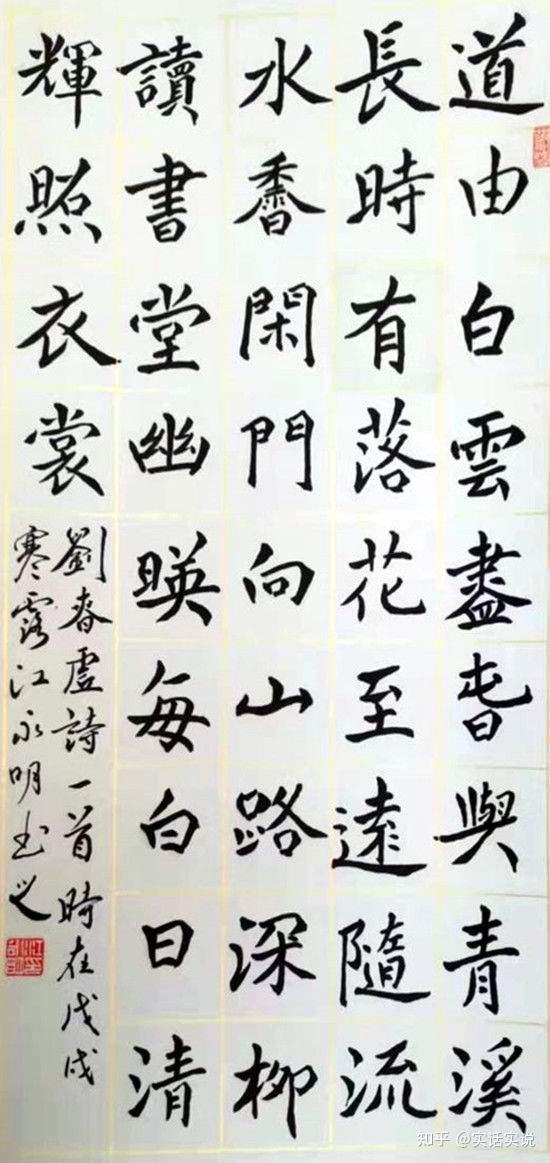 道由白雲盡旾與青溪
長時有落花至遠隨流
水香閑門向山路深柳
讀書堂幽暎每白日清
輝照衣裳
劉春虛詩一首時在戊戌
寒露江永明书之
知乎 @实话实说